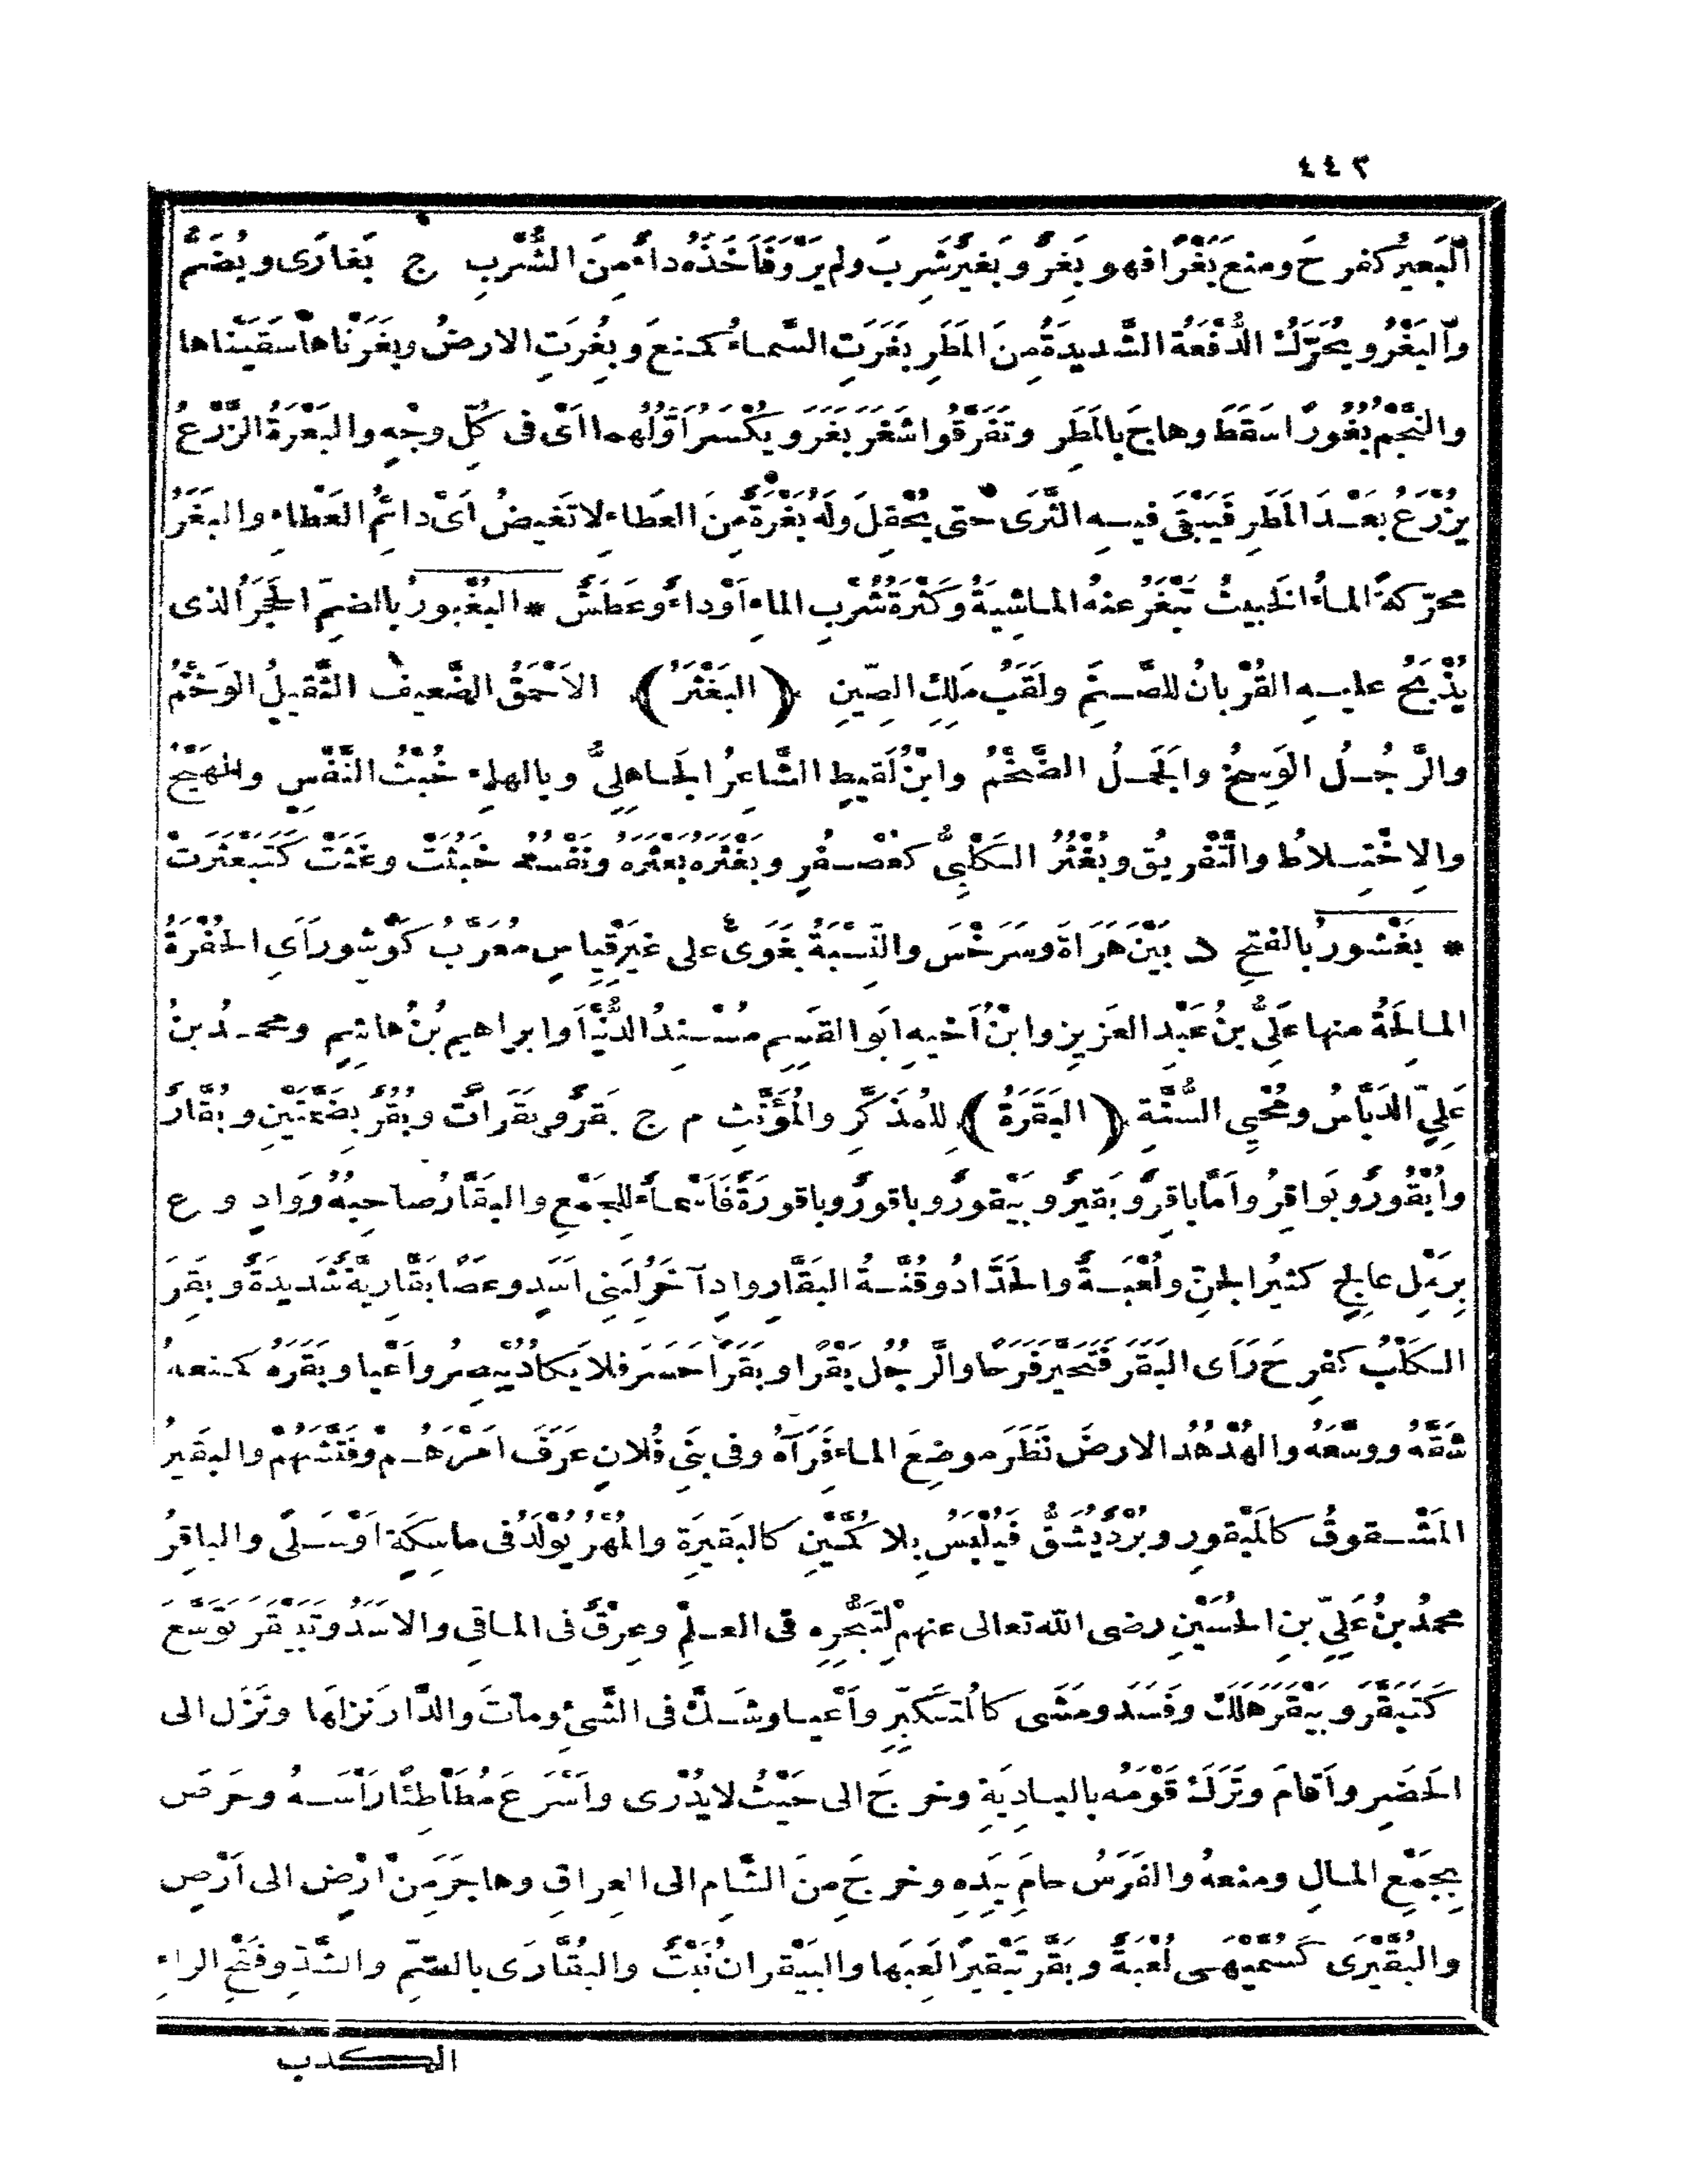 ٤٤٢
البَعيرُ كفرِحَ ومنع بَغْرًا فهو بَغِرٌ وبَغيرٌ شَرِبَ ولم يَرْوَ فَأَخَذَهُ داءٌ مِنَ الشُّرْبِ ج بَغارَى ويُضَمُّ
والبَغْرُ ويُحَرَّكُ الدُّفْعَةُ الشَّديدَةُ مِنَ المَطَرِ بَغَرَتِ السَّماءُ كمنعَ وبُغِرَتِ الارضُ وبَغَرْناها سَقَيْناها
والنَّجْمُ بُغُورًا سَقَطَ وهاجَ بالمَطَرِ وتَفَرَّقُوا شَغَرَ بَغَرَ ويُكْسَرُ أَوَّلُهما اى فى كُلِّ وجْهٍ والبَغْرَةُ الزَّرْعُ
يُزْرَعُ بَعْدَ المَطَرِ فَيَبْقَى فيه الثَّرَى حتى يُحْقِلَ ولَهُ بَغْرَةٌ مِنَ العَطاءِ لا تَغيضُ أىْ دائِمُ العَطاءِ والبَغَرُ
محرّكةً الماءُ الخَبيثُ تَبْغَرُ عنهُ الماشِيَةُ وكَثْرَةُ شُرْبِ الماءِ اَوْ داءٌ وعَطَشٌ * البُغْبورُ بالضمِّ الحَجَرُ الذى
يُذْبَحُ عليه القُرْبانُ للصَّنَمِ ولَقَبُ مَلِكِ الصّينِ (البَغْثَرُ) الاَحْمَقُ الضَّعيفُ الثَّقيلُ الوَخْمُ
والرَّجُلُ الوَسِخُ والجَمَلُ الضَّخْمُ وابْنُ لَقيطٍ الشَّاعِرُ الجَاهِلِىُّ وبالهاءِ خُبْثُ النَّفْسِ والهَيْجُ
والاِخْتِلاطُ والتَّفْريقُ وبُغْثُرُ الكَلْبِىُّ كعُصْفُرٍ وبَغْثَرَهُ بَعْثَرَهُ ونَفْسُهُ خَبُثَتْ وغَثَتْ كَتَبَغْثَرَتْ
* بَغْشورُ بالفتحِ د بَيْنَ هَرَاةَ وسَرَخْسَ والنِّسْبَةُ بَغَوِىٌّ على غيرِ قِياسٍ مُعَرَّبُ كَوْشور أَىِ الحُفْرَةُ
المالِحَةُ منها عَلِىُّ بنُ عَبْدِ العَزيزِ وابْنُ أَخيهِ ابو القَسِمِ مُسْنِدُ الدُّنْيا وابراهيم بنُ هاشِمٍ ومحمدُ بنُ
عَلِىٍّ الدَبَّاسُ ومُحْيِى السُّنَّةِ (البَقَرَةُ) للمُذَكَّرِ والمُؤَنَّثِ م ج بَقَرٌ وبَقَراتٌ وبُقُرٌ بضَمَّتَيْنِ وبُقَّارٌ
وأُبْقُورٌ وبَواقِرُ وأَمَّا باقِرٌ وبَقيرٌ وبَيْقُورٌ وباقورٌ وباقورَةٌ فَأَسْماءٌ للجَمْعِ والبَقَّارُ صاحِبُهُ ووَادٍ و ع
بِرَمْلِ عالِجٍ كثيرُ الجنِّ ولُعْبَةٌ والحَدَّادُ وقُنَّةُ البَقَّارِ وادٍ آخَرُ لبَنِى اَسَدٍ وعَصًا بَقَّارِيَّةٌ شَديدَةٌ وبَقِرَ
الكَلْبُ كفرِحَ رَأَى البَقَرَ فَتَحَيَّرَ فَرَحًا والرَّجُلُ بَقْرًا وبَقَرًا حَسَرَ فلا يَكادُ يُبْصِرُ وأَعْيا وبَقَرَهُ كمنعهُ
شَقَّهُ ووسَّعَهُ والهُدْهُدُ الارضَ نَظَرَ موضِعَ الماءِ فَرَآهُ وفى بَنِى فُلانٍ عَرَفَ اَمْرَهُمْ وفَتَّشَهُمْ والبَقيرُ
المَشْقوقُ كالمَبْقورِ وبُرْدٌ يُشَقُّ فَيُلْبَسُ بِلا كُمَّيْنِ كالبَقيرَةِ والمُهْرُ يُولَدُ فى ماسِكَةٍ أوْ سَلًى والباقِرُ
محمدُ بنُ عَلِىِّ بنِ الحُسَيْنِ رضى الله تعالى عنهم لتَبَحُّرِهِ فى العلْمِ وعِرْقٌ فى الماقِى والاسَدُ وتَبَيْقَرَ تَوَسَّعَ
كَتَبَقَّرَ وبَيْقَرَ هَلَكَ وفَسَدَ ومَشَى كالمُتَكَبِّرِ وأَعْيا وشَكَّ فى الشَّىْءِ وماتَ والدَّارَ نَزَلَها ونَزَلَ الى
الحَضَرِ وأَقامَ وتَرَكَ قَوْمَهُ بالبادِيَةِ وخرجَ الى حَيْثُ لا يُدْرى وأَسْرَعَ مُطَأْطِئًا رَأْسَهُ وحَرَصَ
بِجَمْعِ المالِ ومنعهُ والفَرَسُ صامَ بِيَدِهِ وخرجَ مِنَ الشَّامِ الى العِراقِ وهاجَرَ مِنْ اَرْضٍ الى اَرْضٍ
والبُقَّيْرَى كَسُمَّيْهَى لُعْبَةٌ وبَقَّرَ تَبْقيرًا لَعِبَها والبَيْقُرانُ نَبْتٌ والبُقَّارَى بالضمِّ والشَّدِّ وفَتْحِ الراءِ
الكذب